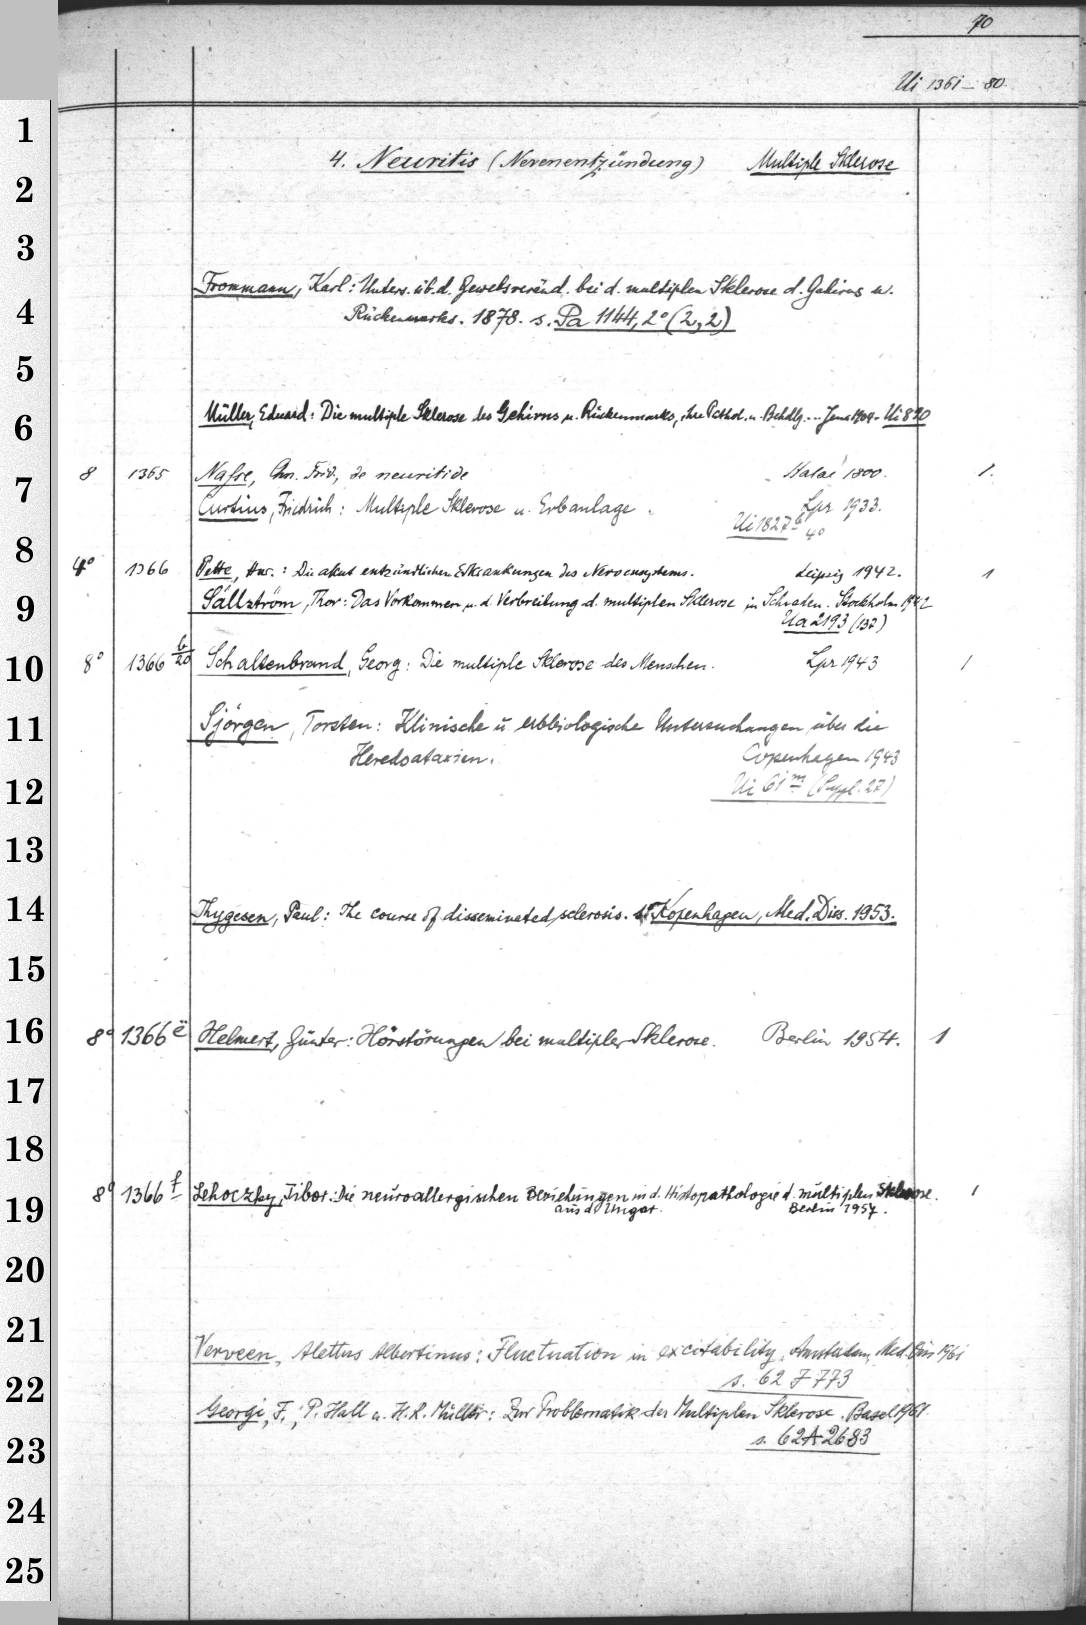 70
Ui 1361 – 80.
4. Neuritis (Nervenentzündung) Multiple Sklerose
Frommann, Karl: Unters. üb. d. Gewebsveränd. bei d. multiplen Sklerose d. Gehirns u.
Rückenmarks. 1878. s. Pa 1144, 2° (2,2)
Müller, Eduard: Die multiple Sklerose des Gehirns u. Rückenmarks, ihre Pathol. u. Behdlg. .. Jena 1904. Ui 890
8 1365 Nasse, Chn. Frid., de neuritide Halae 1800. 1.
Curtius, Friedrich: Multiple Sklerose u. Erbanlage. Lpz 1933.
Ui 1827 b 4°
4° 1366 Pette, Hnr.: Die akut entzündlichen Erkrankungen des Nervensystems. Leipzig 1942. 1
Sällström, Thor: Das Vorkommen u. d. Verbreitung d. multiplen Sklerose in Schweden. Stockholm 1942
Ua 2193 (137)
8° 1366 b/20 Schaltenbrand, Georg: Die multiple Sklerose des Menschen. Lpz 1943 1
Sjörgen, Torsten: Klinische u. erbbiologische Untersuchungen über die
Heredoataxien. Copenhagen 1943
Ui 61 m (Suppl. 27)
Thygesen, Paul: The course of disseminated sclerosis. s. Kopenhagen, Med. Diss. 1953.
8° 1366 e Helmert, Günter: Hörstörungen bei multipler Sklerose. Berlin 1954. 1
8° 1366 f Lehoczky, Tibor: Die neuroallergischen Beziehungen in d. Histopathologie d. multiplen Sklerose. 1
aus d. Ungar. Berlin 1957.
Verveen, Alettus Albertinus: Fluctuation in excitability. Amsterdam, Med. Diss 1961
s. 62 J 773
Georgi, F., P. Hall u. H. R. Müller: Zur Problematik der Multiplen Sklerose. Basel 1961
s. 62 A 2683